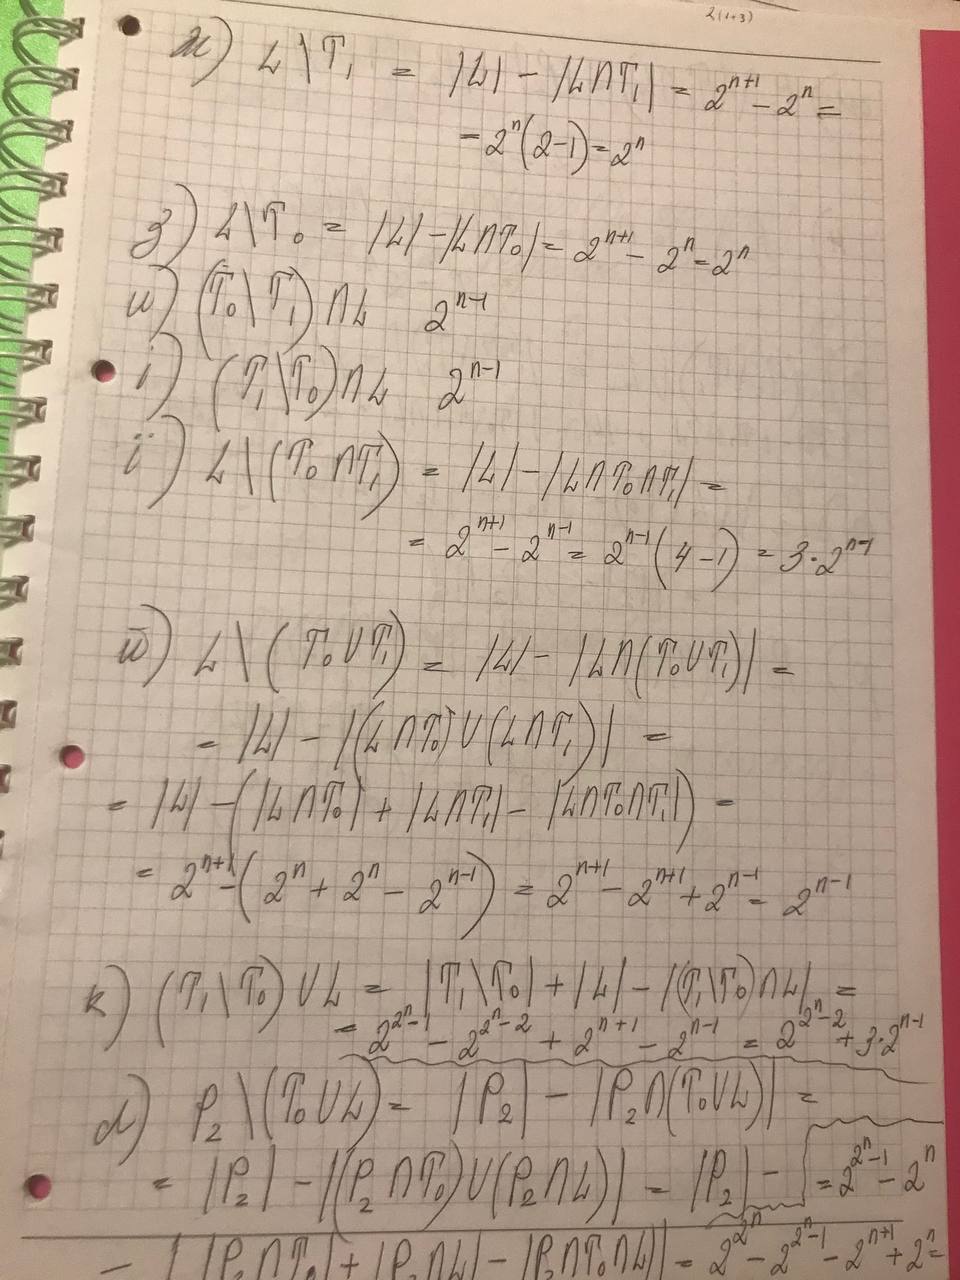 2(1+3)
ж) L \ T₁ = |L| − |L∩T₁| = 2ⁿ⁺¹ − 2ⁿ =
= 2ⁿ(2−1) = 2ⁿ
з) L\T₀ = |L| − |L∩T₀| = 2ⁿ⁺¹ − 2ⁿ = 2ⁿ
и) (T₀\T₁)∩L 2ⁿ⁻¹
і) (T₁\T₀)∩L 2ⁿ⁻¹
ї) L\(T₀∩T₁) = |L| − |L∩T₀∩T₁| =
= 2ⁿ⁺¹ − 2ⁿ⁻¹ = 2ⁿ⁻¹(4−1) = 3·2ⁿ⁻¹
й) L\(T₀∪T₁) = |L| − |L∩(T₀∪T₁)| =
= |L| − |(L∩T₀)∪(L∩T₁)| =
= |L| − (|L∩T₀| + |L∩T₁| − |L∩T₀∩T₁|) =
= 2ⁿ⁺¹ − (2ⁿ + 2ⁿ − 2ⁿ⁻¹) = 2ⁿ⁺¹ − 2ⁿ⁺¹ + 2ⁿ⁻¹ = 2ⁿ⁻¹
к) (T₁\T₀)∪L = |T₁\T₀| + |L| − |(T₁\T₀)∩L| =
= 2^{2ⁿ−1} − 2^{2ⁿ−2} + 2ⁿ⁺¹ − 2ⁿ⁻¹ = 2^{2ⁿ−2} + 3·2ⁿ⁻¹
л) P₂\(T₀∪L) = |P₂| − |P₂∩(T₀∪L)| =
= |P₂| − |(P₂∩T₀)∪(P₂∩L)| = |P₂| −
− ||P₂∩T₀| + |P₂∩L| − |P₂∩T₀∩L|| = 2^{2ⁿ} − 2^{2ⁿ−1} − 2ⁿ⁺¹ + 2ⁿ =
= 2^{2ⁿ−1} − 2ⁿ